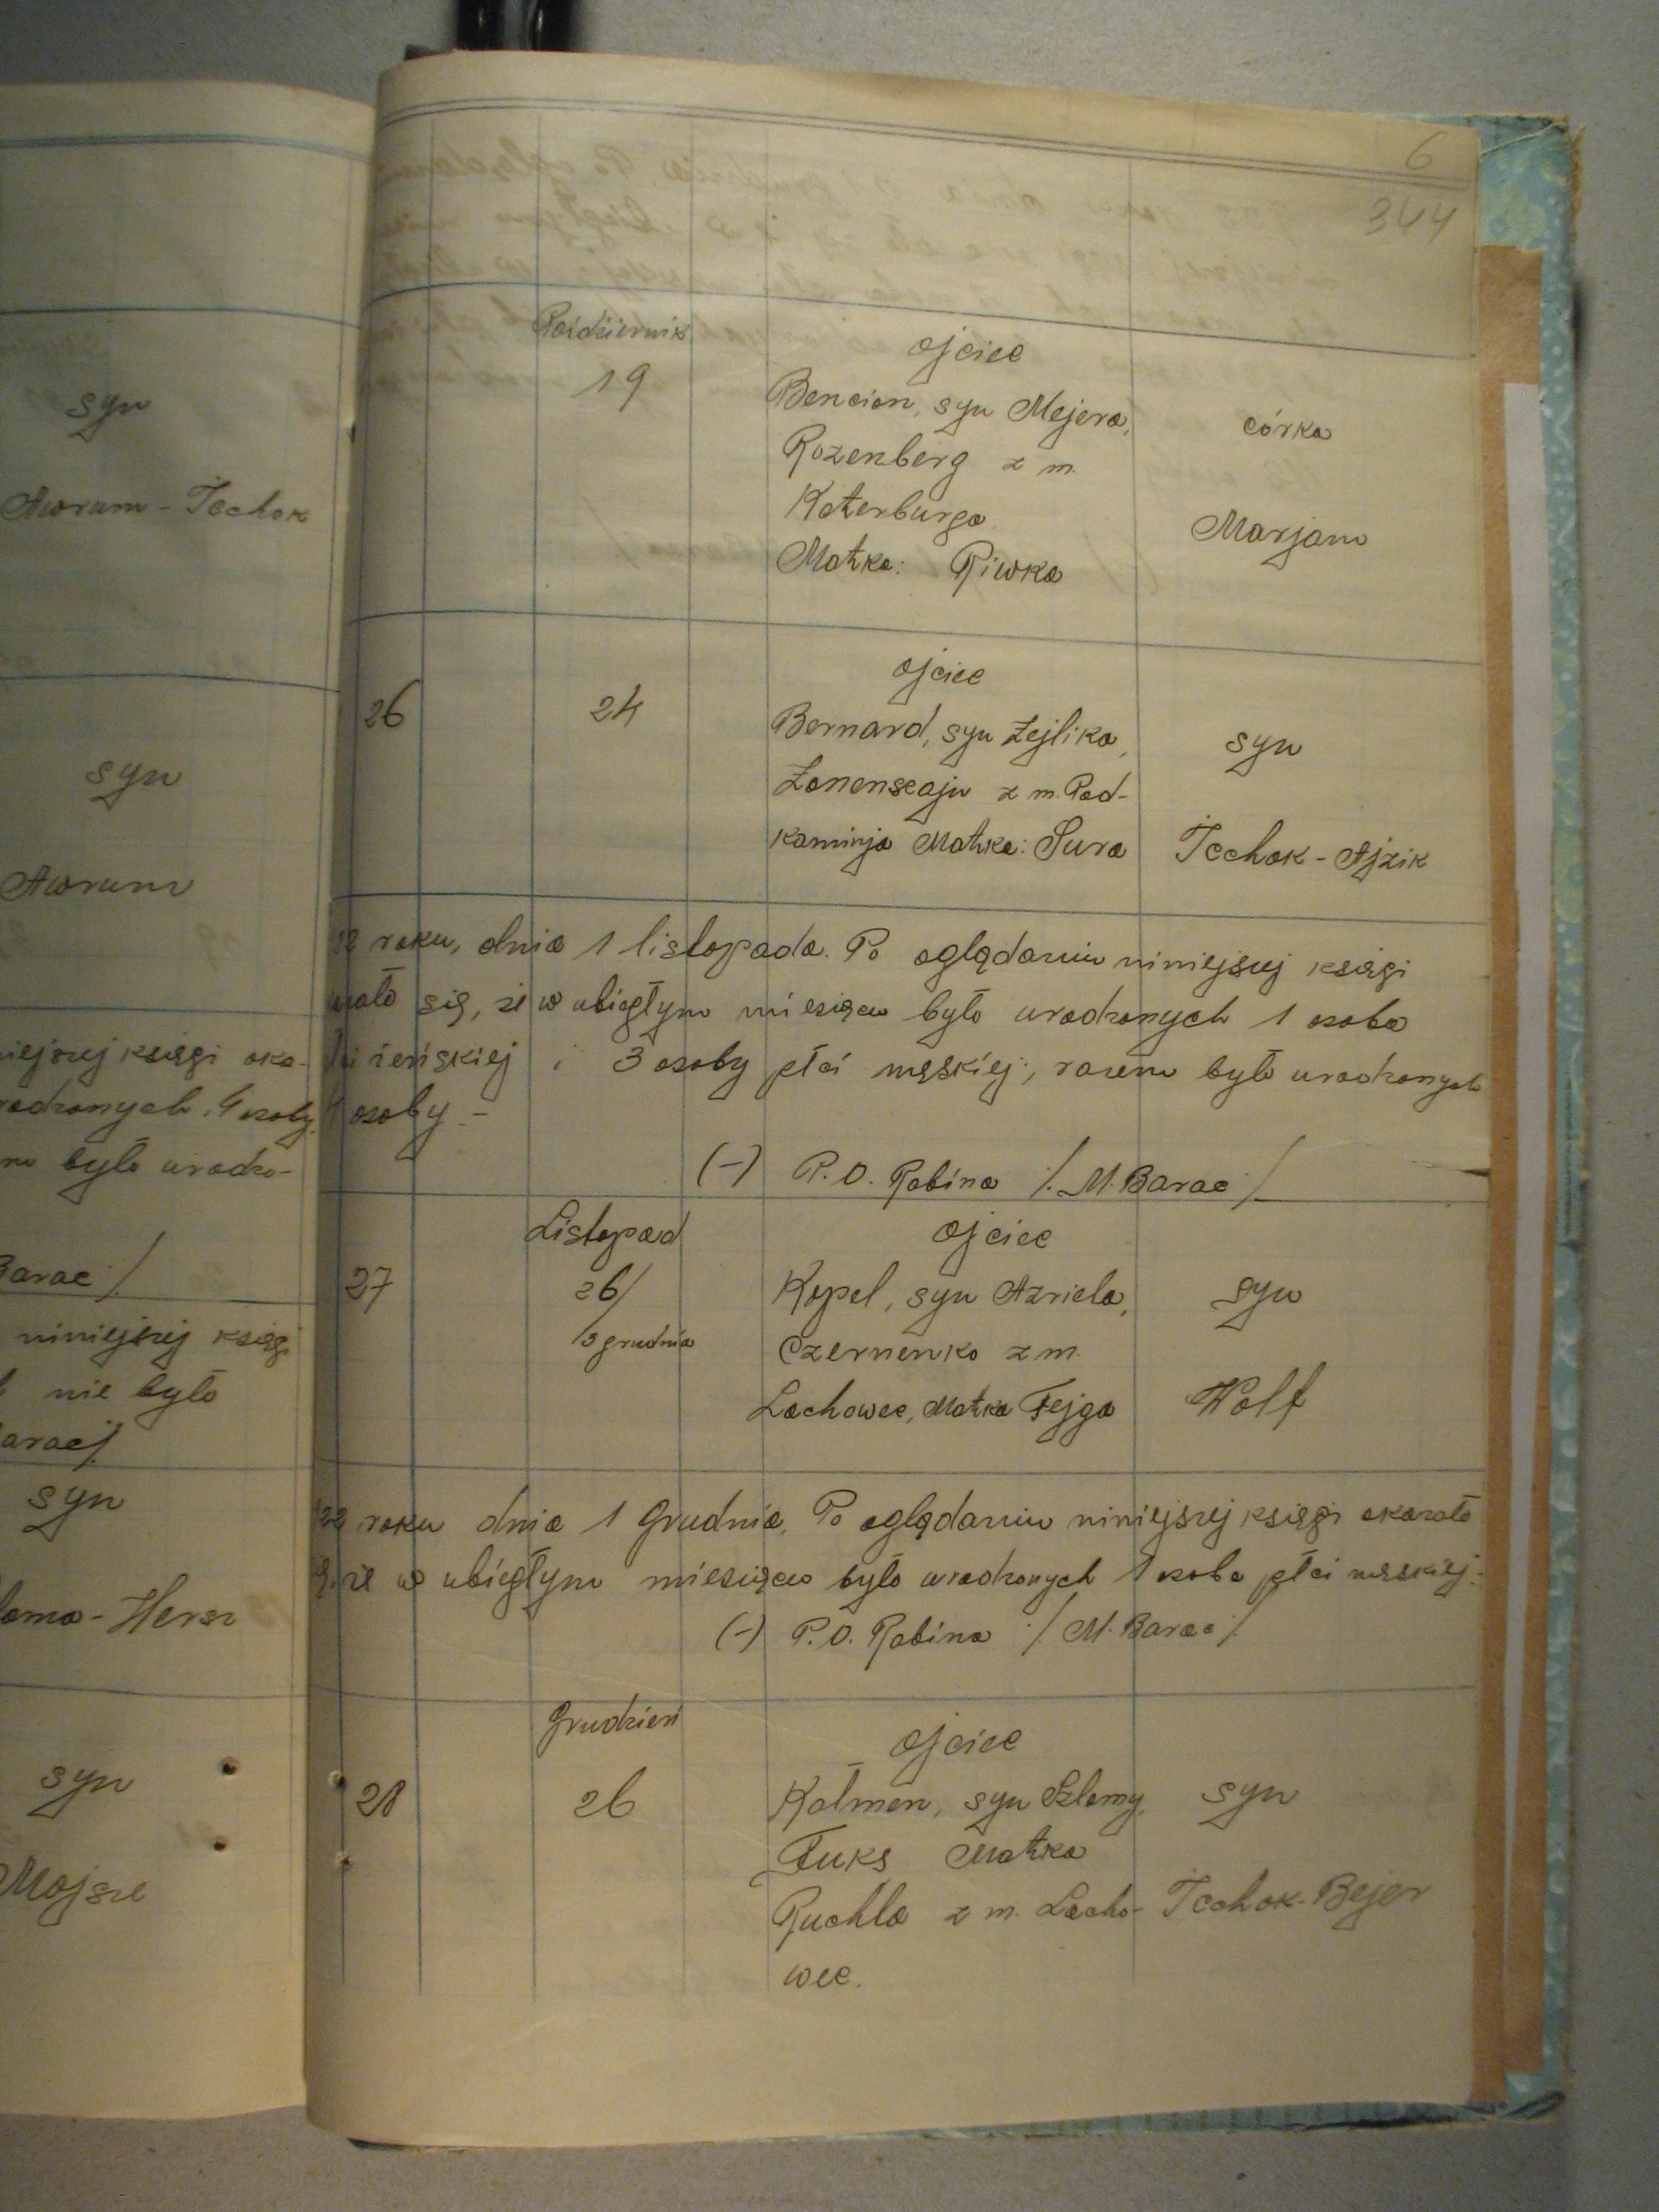 syn
Awrum - Icchok
syn
Awrum
niejszej księgi oka-
rodzonych 4 osoby
było urodzo-
Barac /
niniejszej księgi
nie było
arac /
syn
loma - Hersz
syn
Mojsze
6
344
Październik
ojciec
19
Bencion, syn Mejera,
córka
Rozenberg z m.
Katerburga
Marjam
Matka: Riwka
ojciec
26
24
Bernard, syn Zejlika,
syn
z m. Pod-
kaminja Matka: Sura
Icchok - Ajzik
22 roku, dnia 1 listopada. Po oglądaniu niniejszej księgi
zało się, że w ubiegłym miesiącu było urodzonych 1 osoba
żeńskiej i 3 osoby płci męskiej, razem było urodzonych
osoby. -
(-) P.O. Rabina /. M. Barac /
Listopad
ojciec
27
26/
Kopel, syn Azriela,
syn
3 grudnia
Czernenko z m.
Lachowec, Matka Fejga
Wolf
22 roku dnia 1 Grudnia. Po oglądaniu niniejszej księgi okazało
że w ubiegłym miesiącu było urodzonych 1 osoba płci męskiej. -
(-) P.O. Rabina /. M. Barac /.
Grudzień
ojciec
28
26
Kalmen, syn Szlomy,
syn
Fuks Matka
Ruchla z m. Lacho-
Icchok - Bejer
wec.